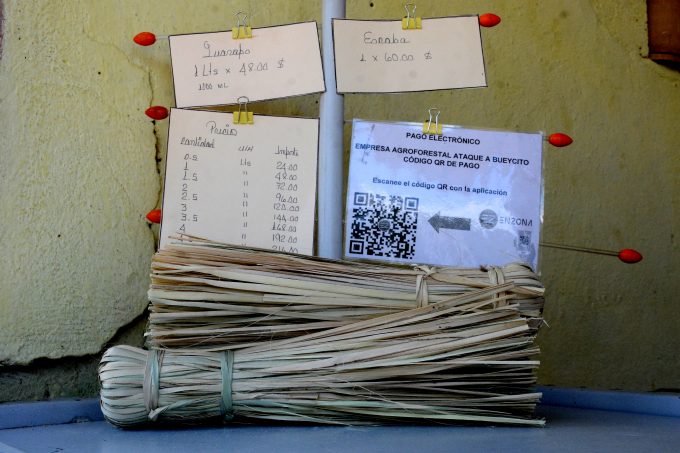 Guarapo
1 Lts x 48.00 $
1000 ML
Escoba
1 x 60.00 $
Precio
Cantidad U/M Importe
0.5 Lts 24.00
1 " 48.00
1.5 " 72.00
2 " 96.00
2.5 " 120.00
3 " 144.00
3.5 " 168.00
4 192.00
216.00
PAGO ELECTRÓNICO
EMPRESA AGROFORESTAL ATAQUE A BUEYCITO
CÓDIGO QR DE PAGO
Escanee el código QR con la aplicación
ENZONA